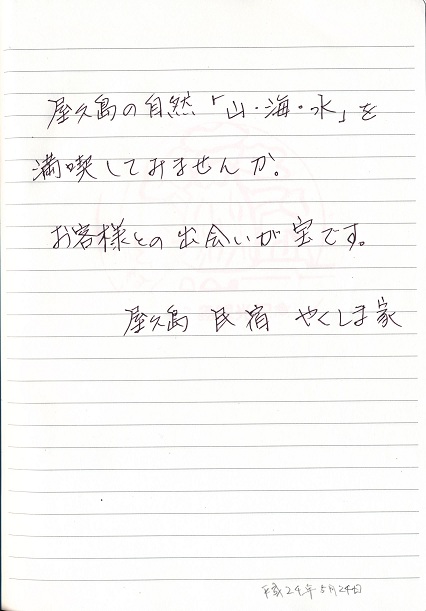 屋久島の自然「山・海・水」を
満喫してみませんか。
お客様との出会いが宝です。
屋久島 民宿 やくしま家
平成24年5月24日